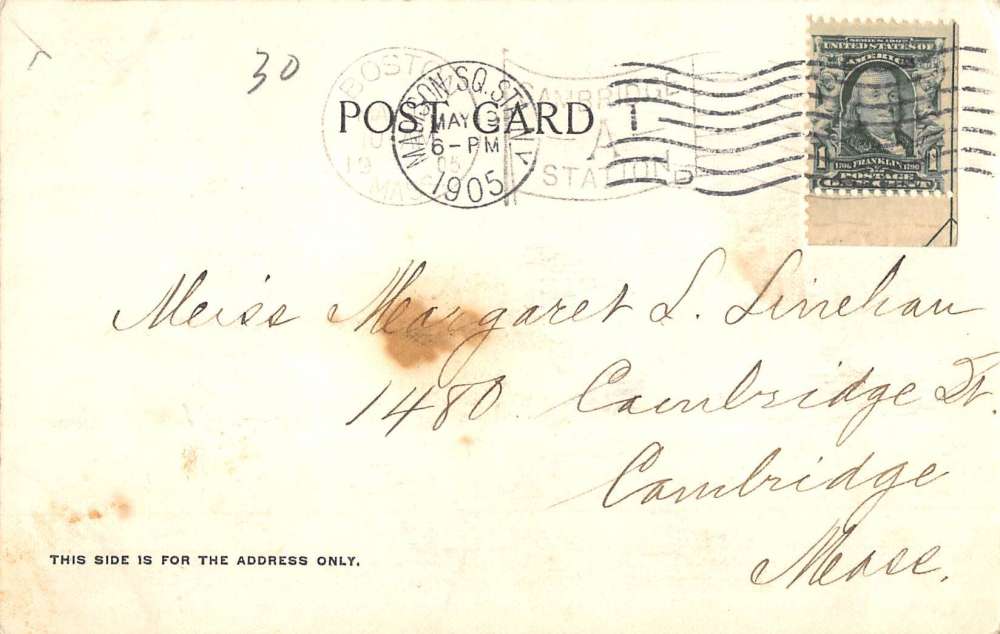 30
BOSTON
POST CARD
MADISON SQ. STA. N.Y.
MAY 9
6-PM
1905
CAMBRIDGE
A
STATION
1
D
SERIES 1902
UNITED STATES OF
AMERICA
1706 FRANKLIN 1790
POSTAGE
ONE CENT
Miss Margaret L. Linehan
1480 Cambridge St.
Cambridge
Mass.
THIS SIDE IS FOR THE ADDRESS ONLY.